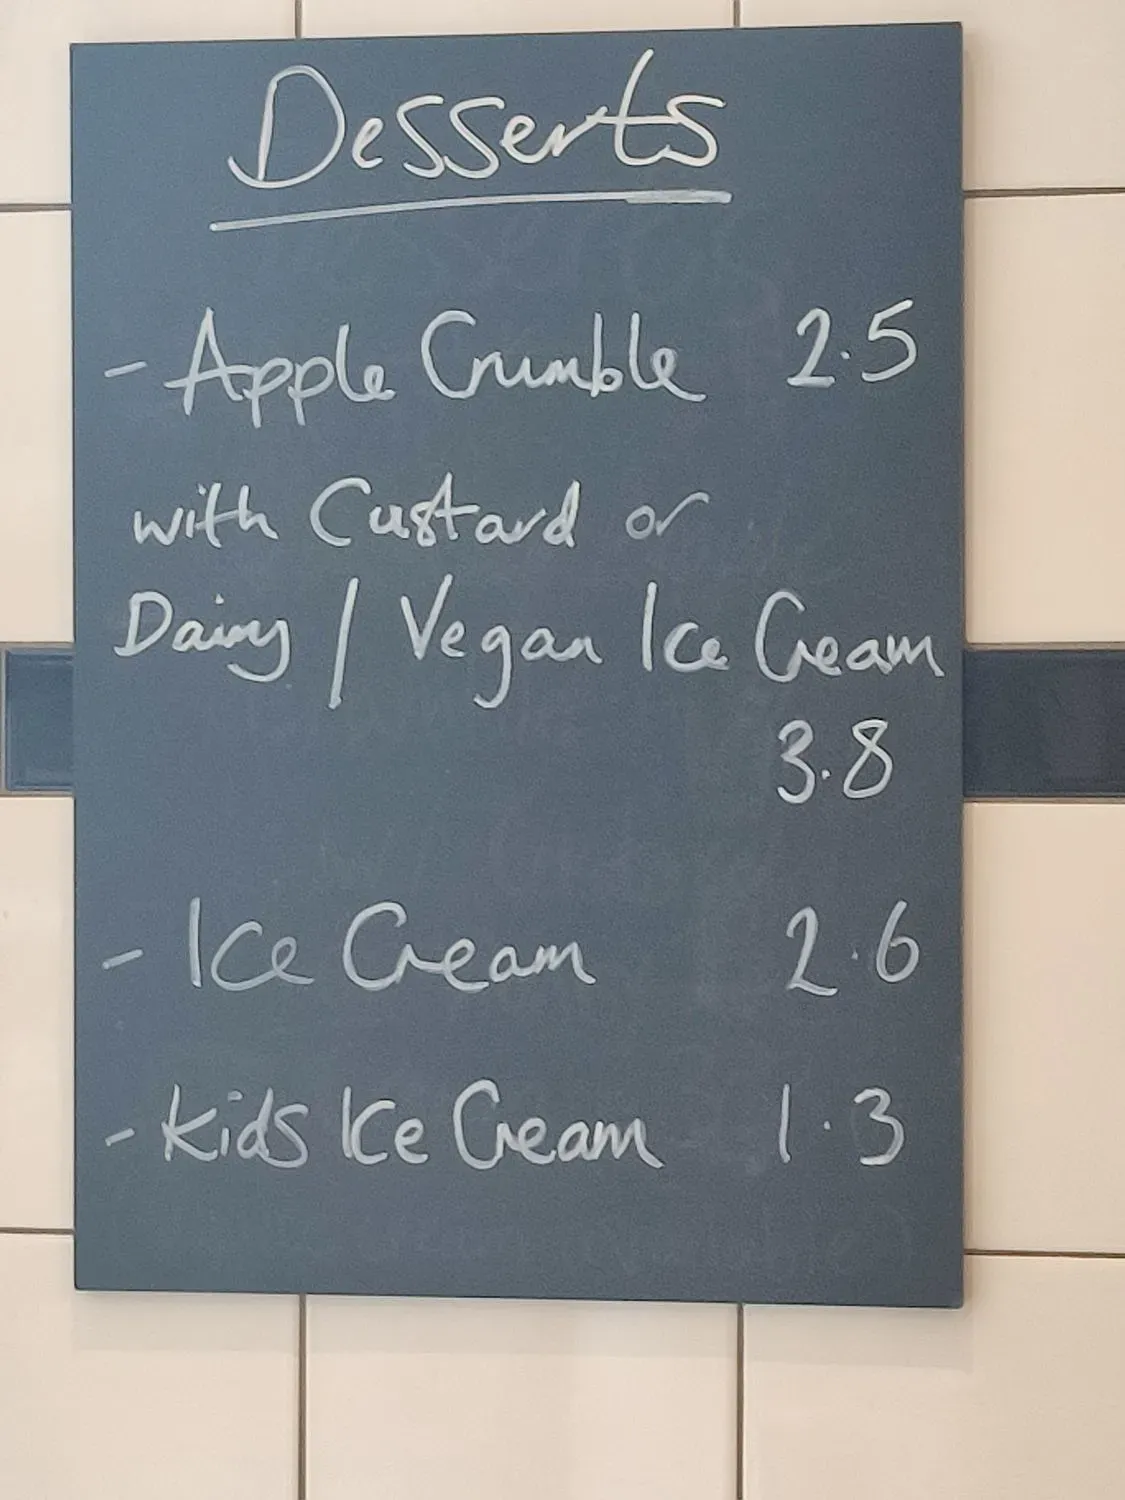 Desserts
- Apple Crumble 2.5
with Custard or
Dairy / Vegan Ice Cream
3.8
- Ice Cream 2.6
- Kids Ice Cream 1.3